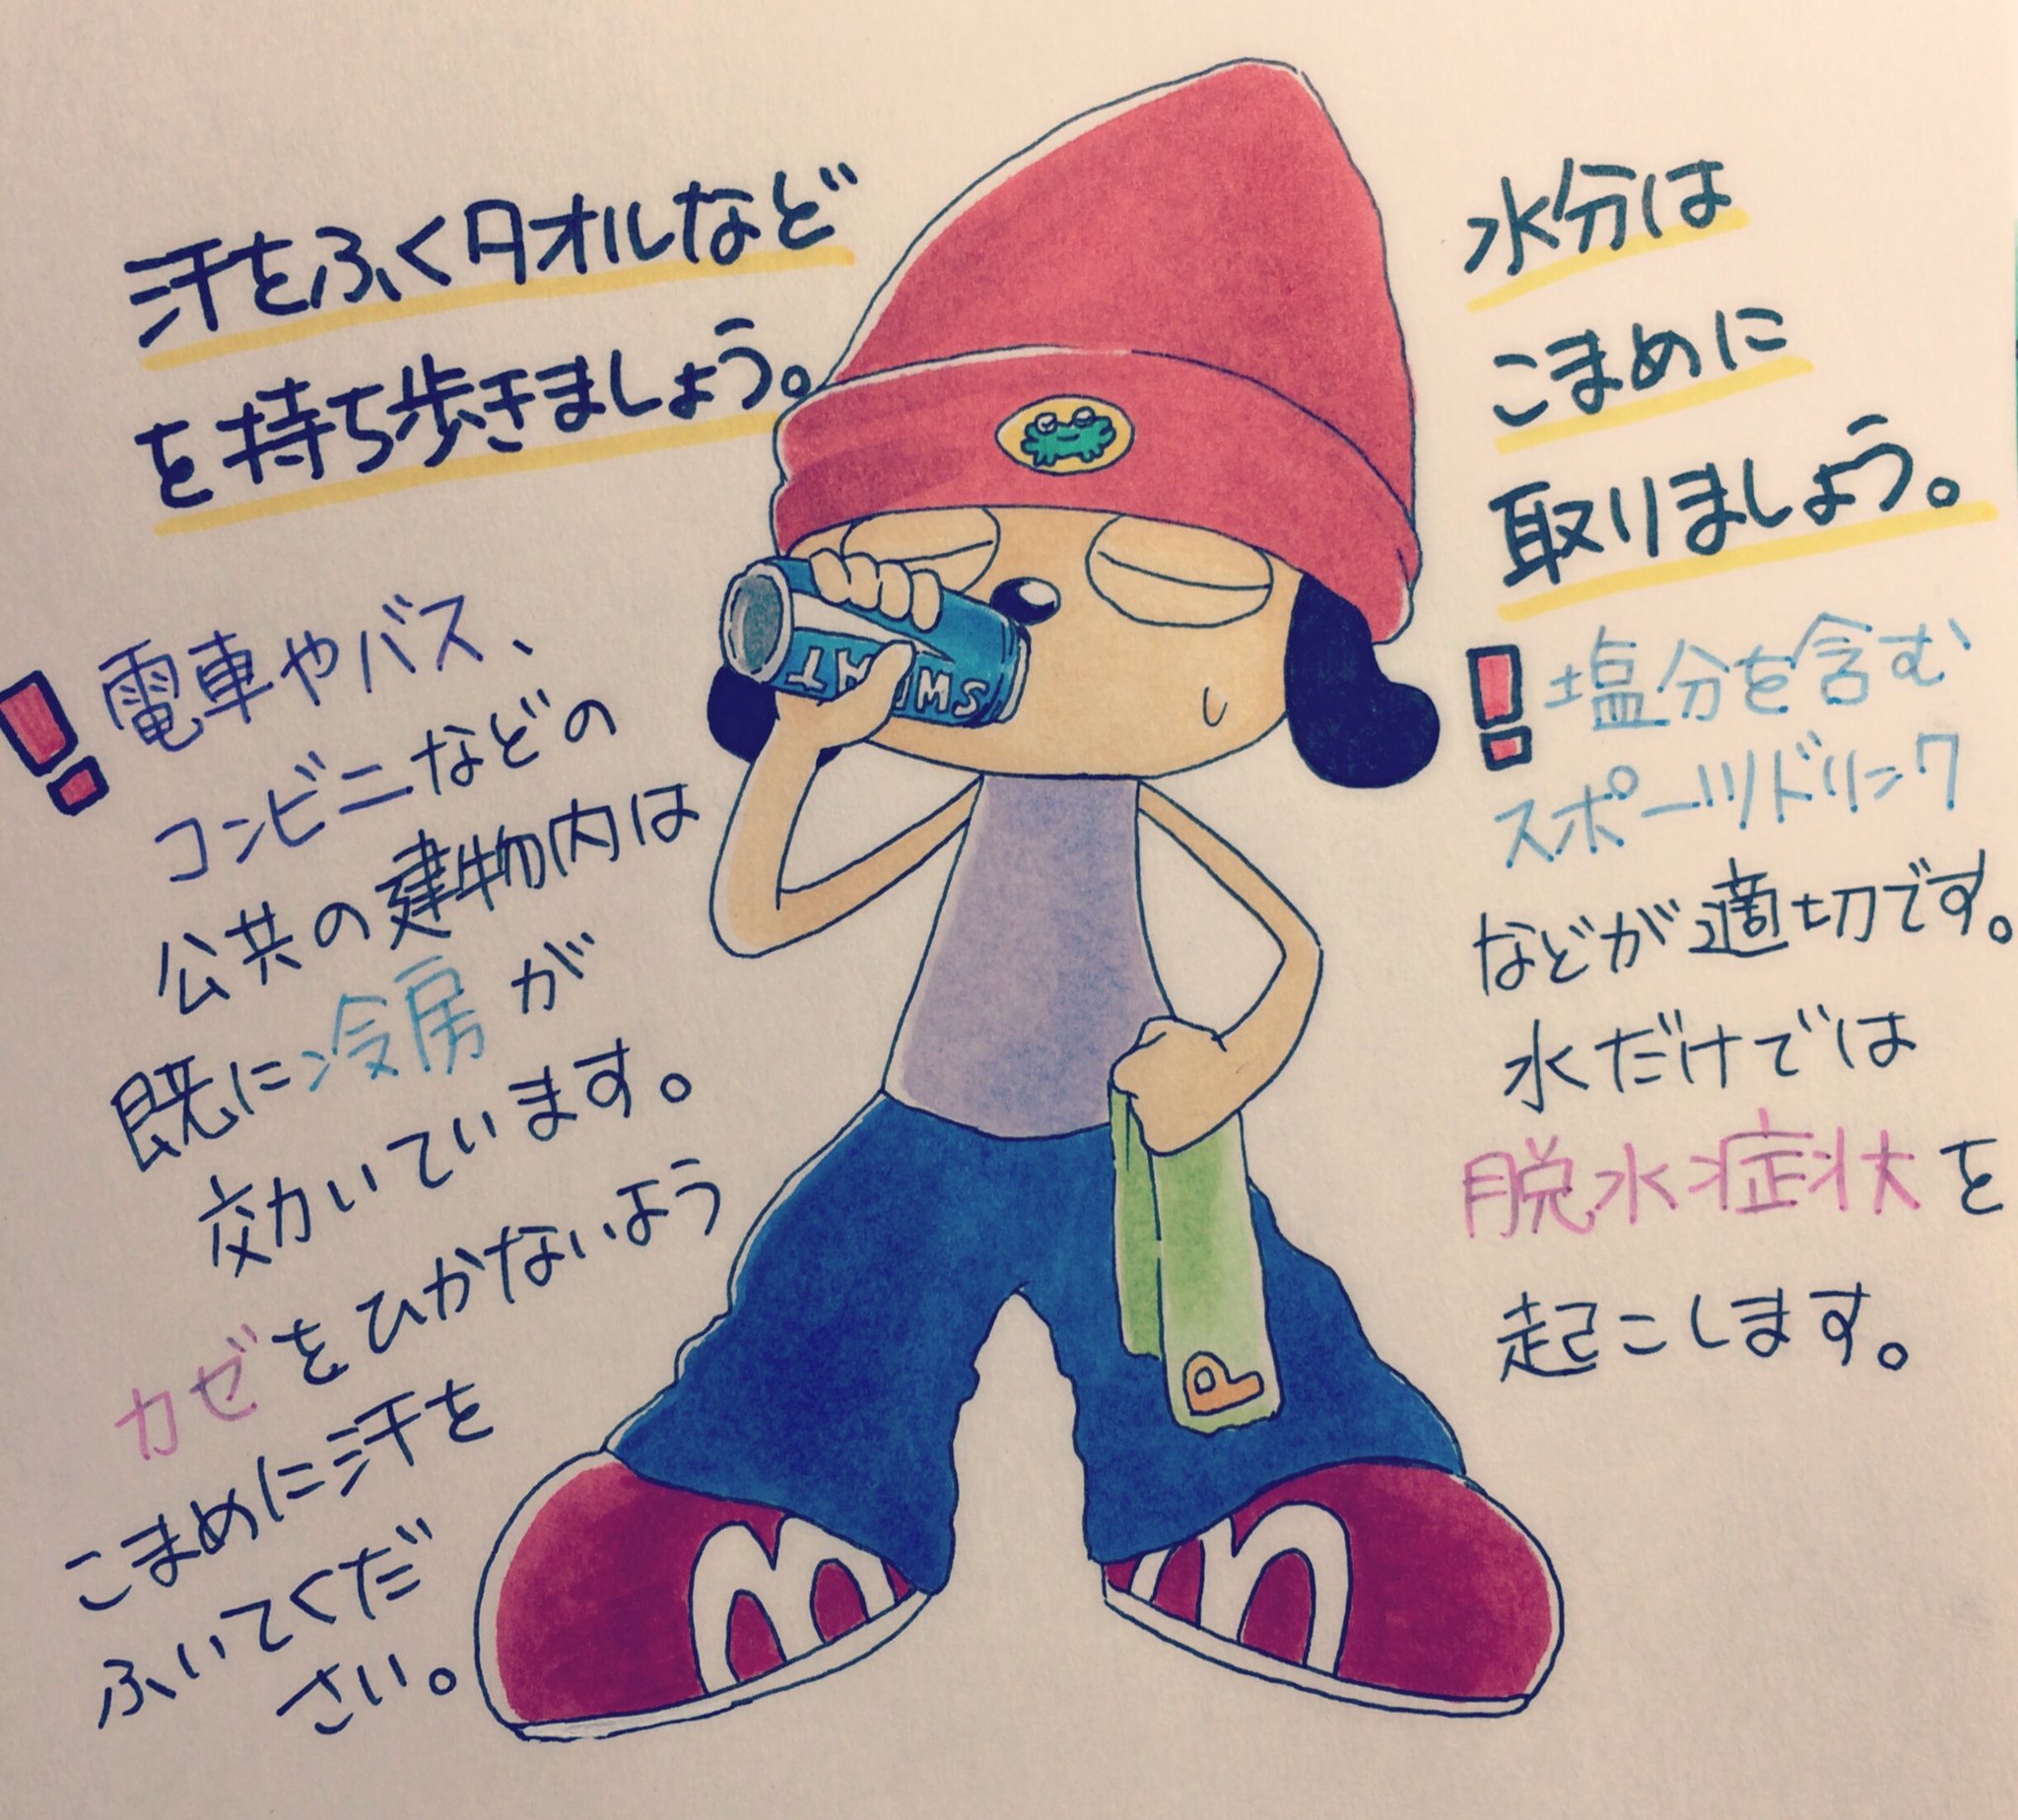 汗をふくタオルなど
を持ち歩きましょう。
電車やバス、
コンビニなどの
公共の建物内は
既に冷房が
効いています。
カゼをひかないよう
こまめに汗を
ふいてくだ
さい。
水分は
こまめに
取りましょう。
塩分を含む
スポーツドリンク
などが適切です。
水だけでは
脱水症状を
起こします。
P